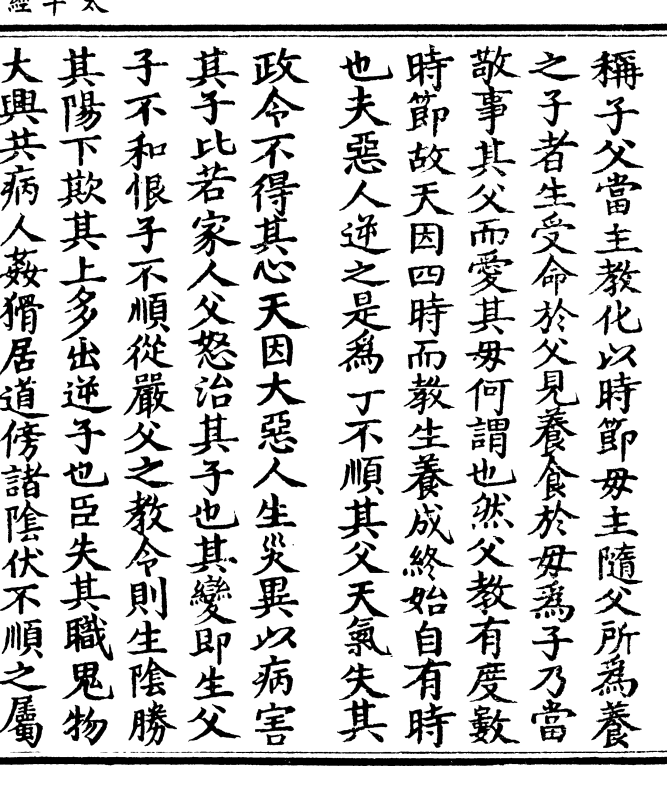 太平經
稱子父當主教化以時節毋主隨父所爲養
之子者生受命於父見養食於毋爲子乃當
敬事其父而愛其毋何謂也然父教有度數
時節故天因四時而教生養成終始自有時
也夫惡人逆之是爲丁不順其父天氣失其
政令不得其心天因大惡人生災異以病害
其子比若家人父怒治其子也其變即生父
子不和恨子不順從嚴父之教令則生陰勝
其陽下欺其上多出逆子也臣失其職鬼物
大興共病人姦猾居道傍諸陰伏不順之屬